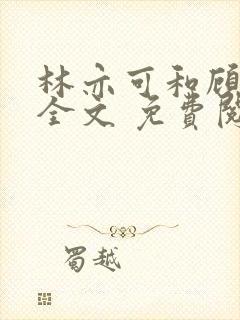 林亦可和顾
全文 免費閱
蜀越